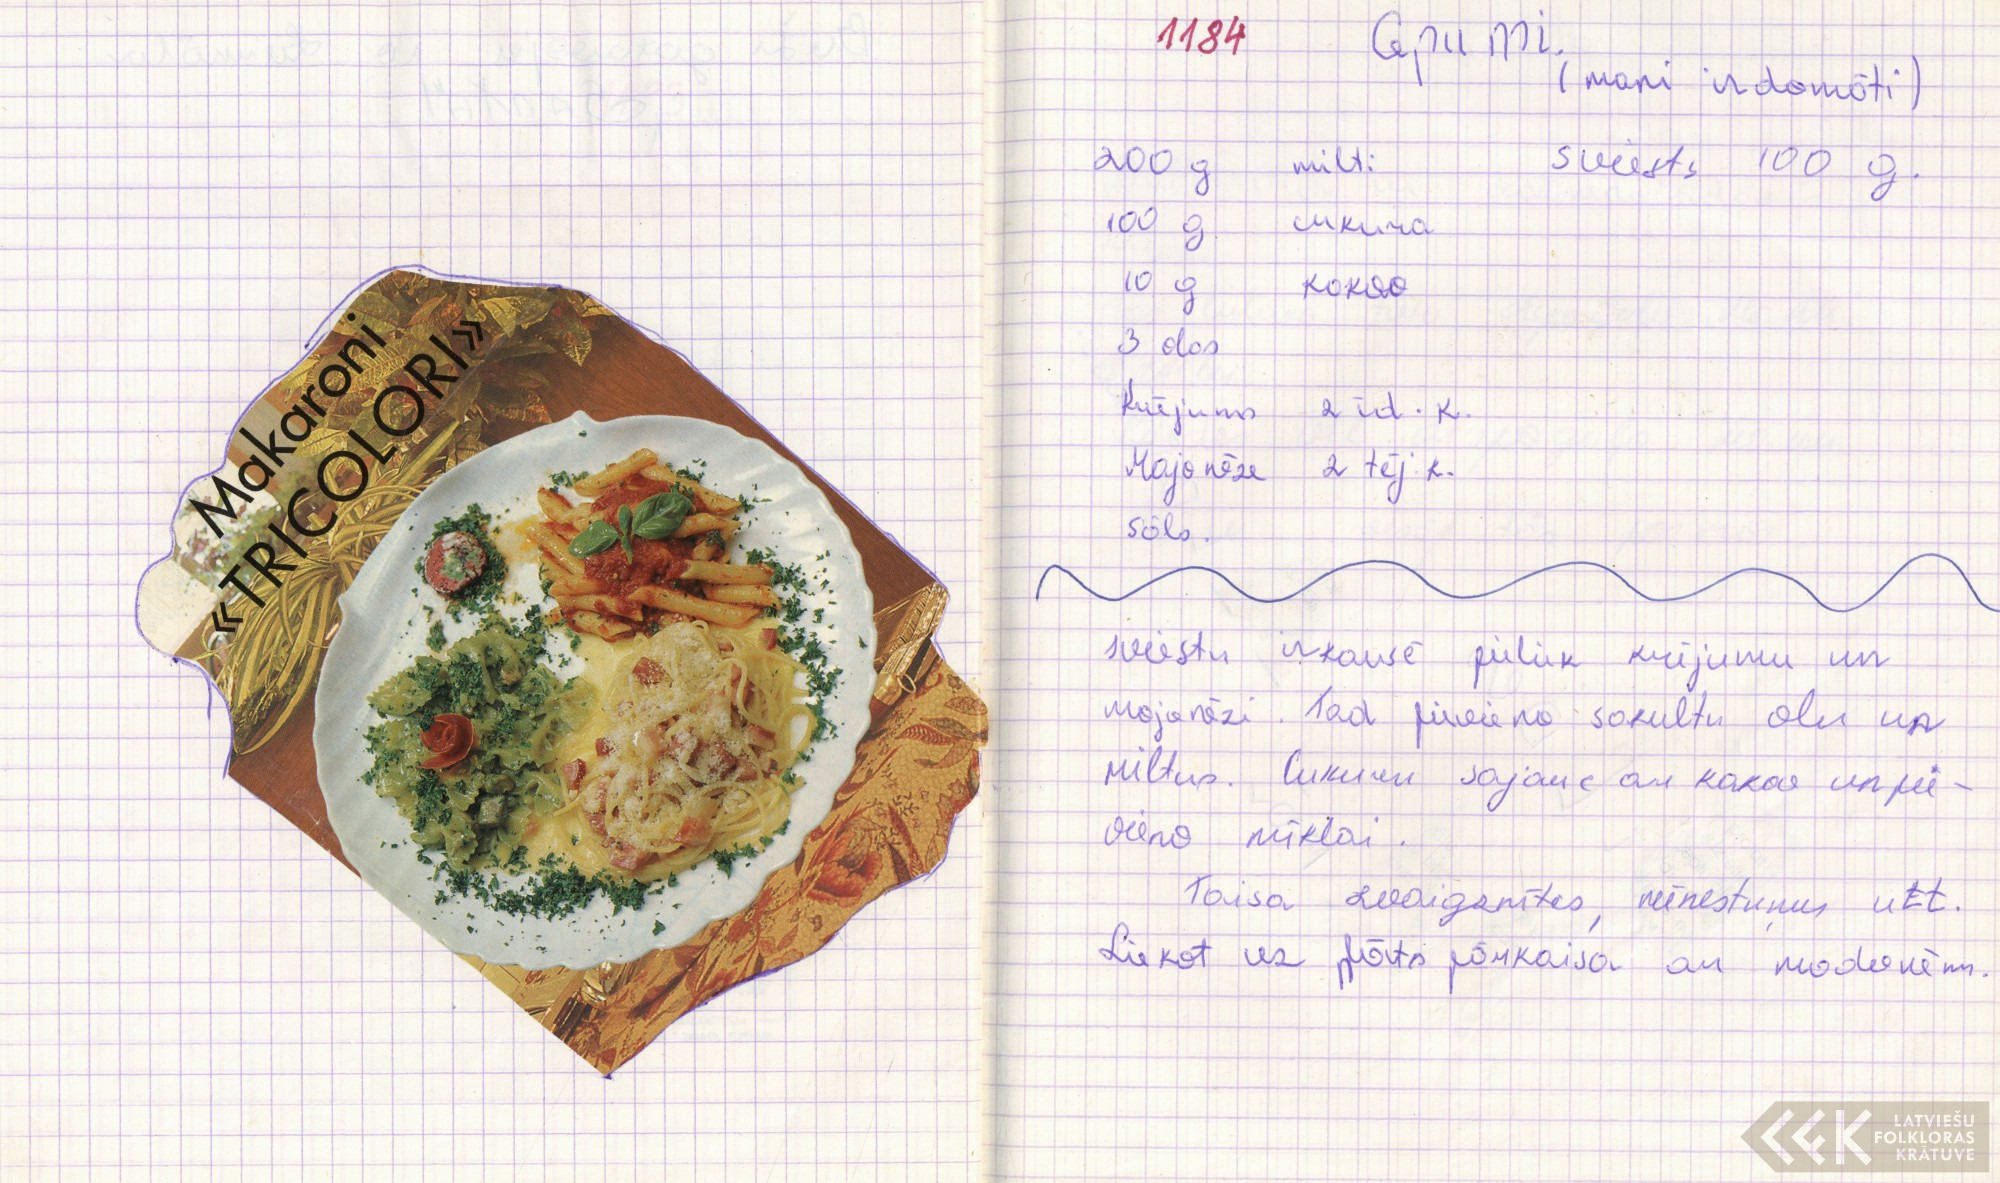 Makaroni
«TRICOLORI»
1184
Cepumi.
(mani izdomāti)
200 g milti sviests 100 g.
100 g. cukura
10 g kakao
3 olas
Krējums 2 ēd. k.
Majonēze 2 tēj. k.
sāls.
sviestu izkausē pieliek krējumu un
majonēzi. Tad pievieno sakultu olu un
miltus. Cukuru sajauc ar kakao un pie-
vieno mīklai.
Taisa zvaigznītes, mēnestiņus utt.
Liekot uz plāts pārkaisa ar magonēm.
LATVIEŠU
FOLKLORAS
KRĀTUVE